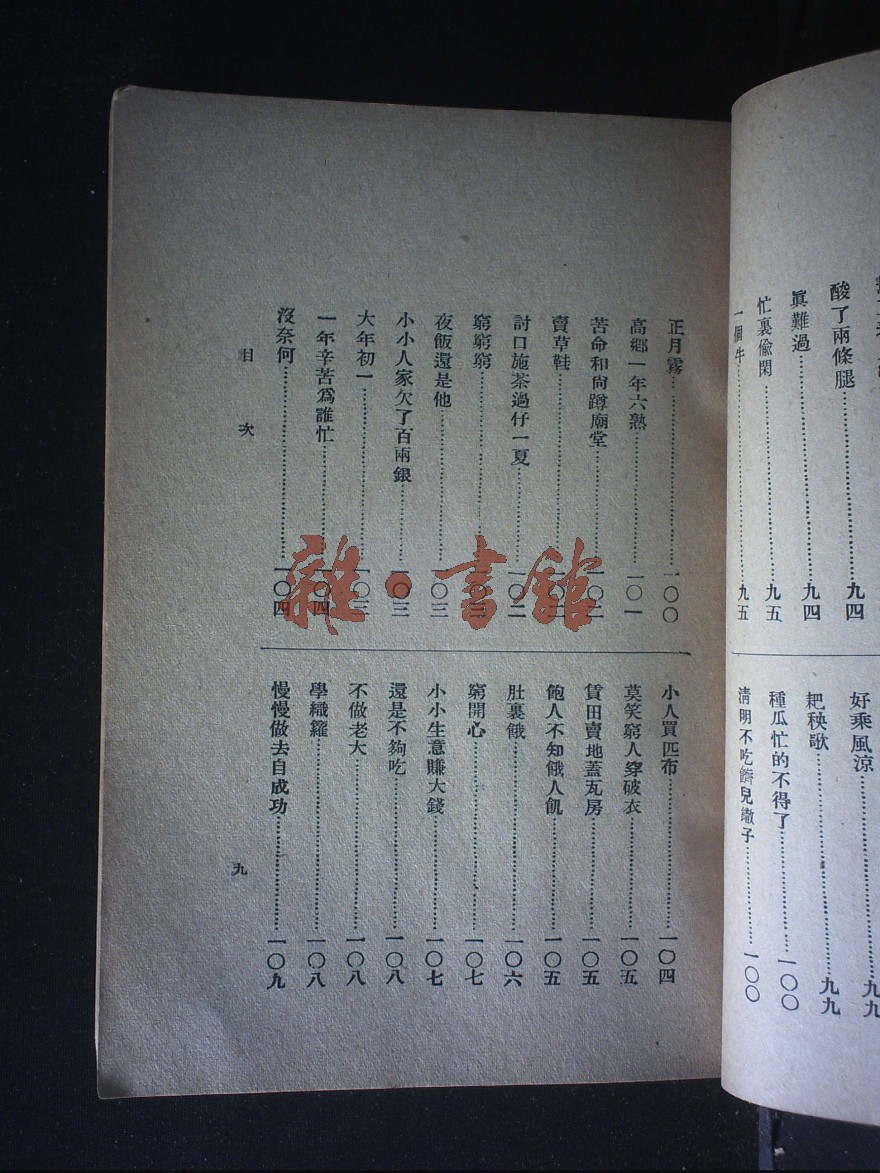 酸了兩條腿……九四
眞難過……九四
忙裏偸閑……九五
一個牛……九五
好乘風涼……九九
耙秧歌……九九
種瓜忙的不得了……一〇〇
淸明不吃 兒 子……一〇〇
正月霧……一〇〇
高鄉一年六熟……一〇一
苦命和尙蹲廟堂
賣草鞋
討口施茶過仔一夏……一〇二
窮窮窮
夜飯還是他……一〇三
小小人家欠了百兩銀……一〇三
大年初一……一〇三
一年辛苦爲誰忙……一〇四
沒奈何……一〇四
小人買匹布……一〇四
莫笑窮人穿破衣……一〇五
賃田賣地蓋瓦房……一〇五
飽人不知餓人飢……一〇五
肚裏餓……一〇六
窮開心……一〇七
小小生意賺大錢……一〇七
還是不夠吃……一〇八
不做老大……一〇八
學織籮……一〇八
慢慢做去自成功……一〇九
目次
九
雜·書館